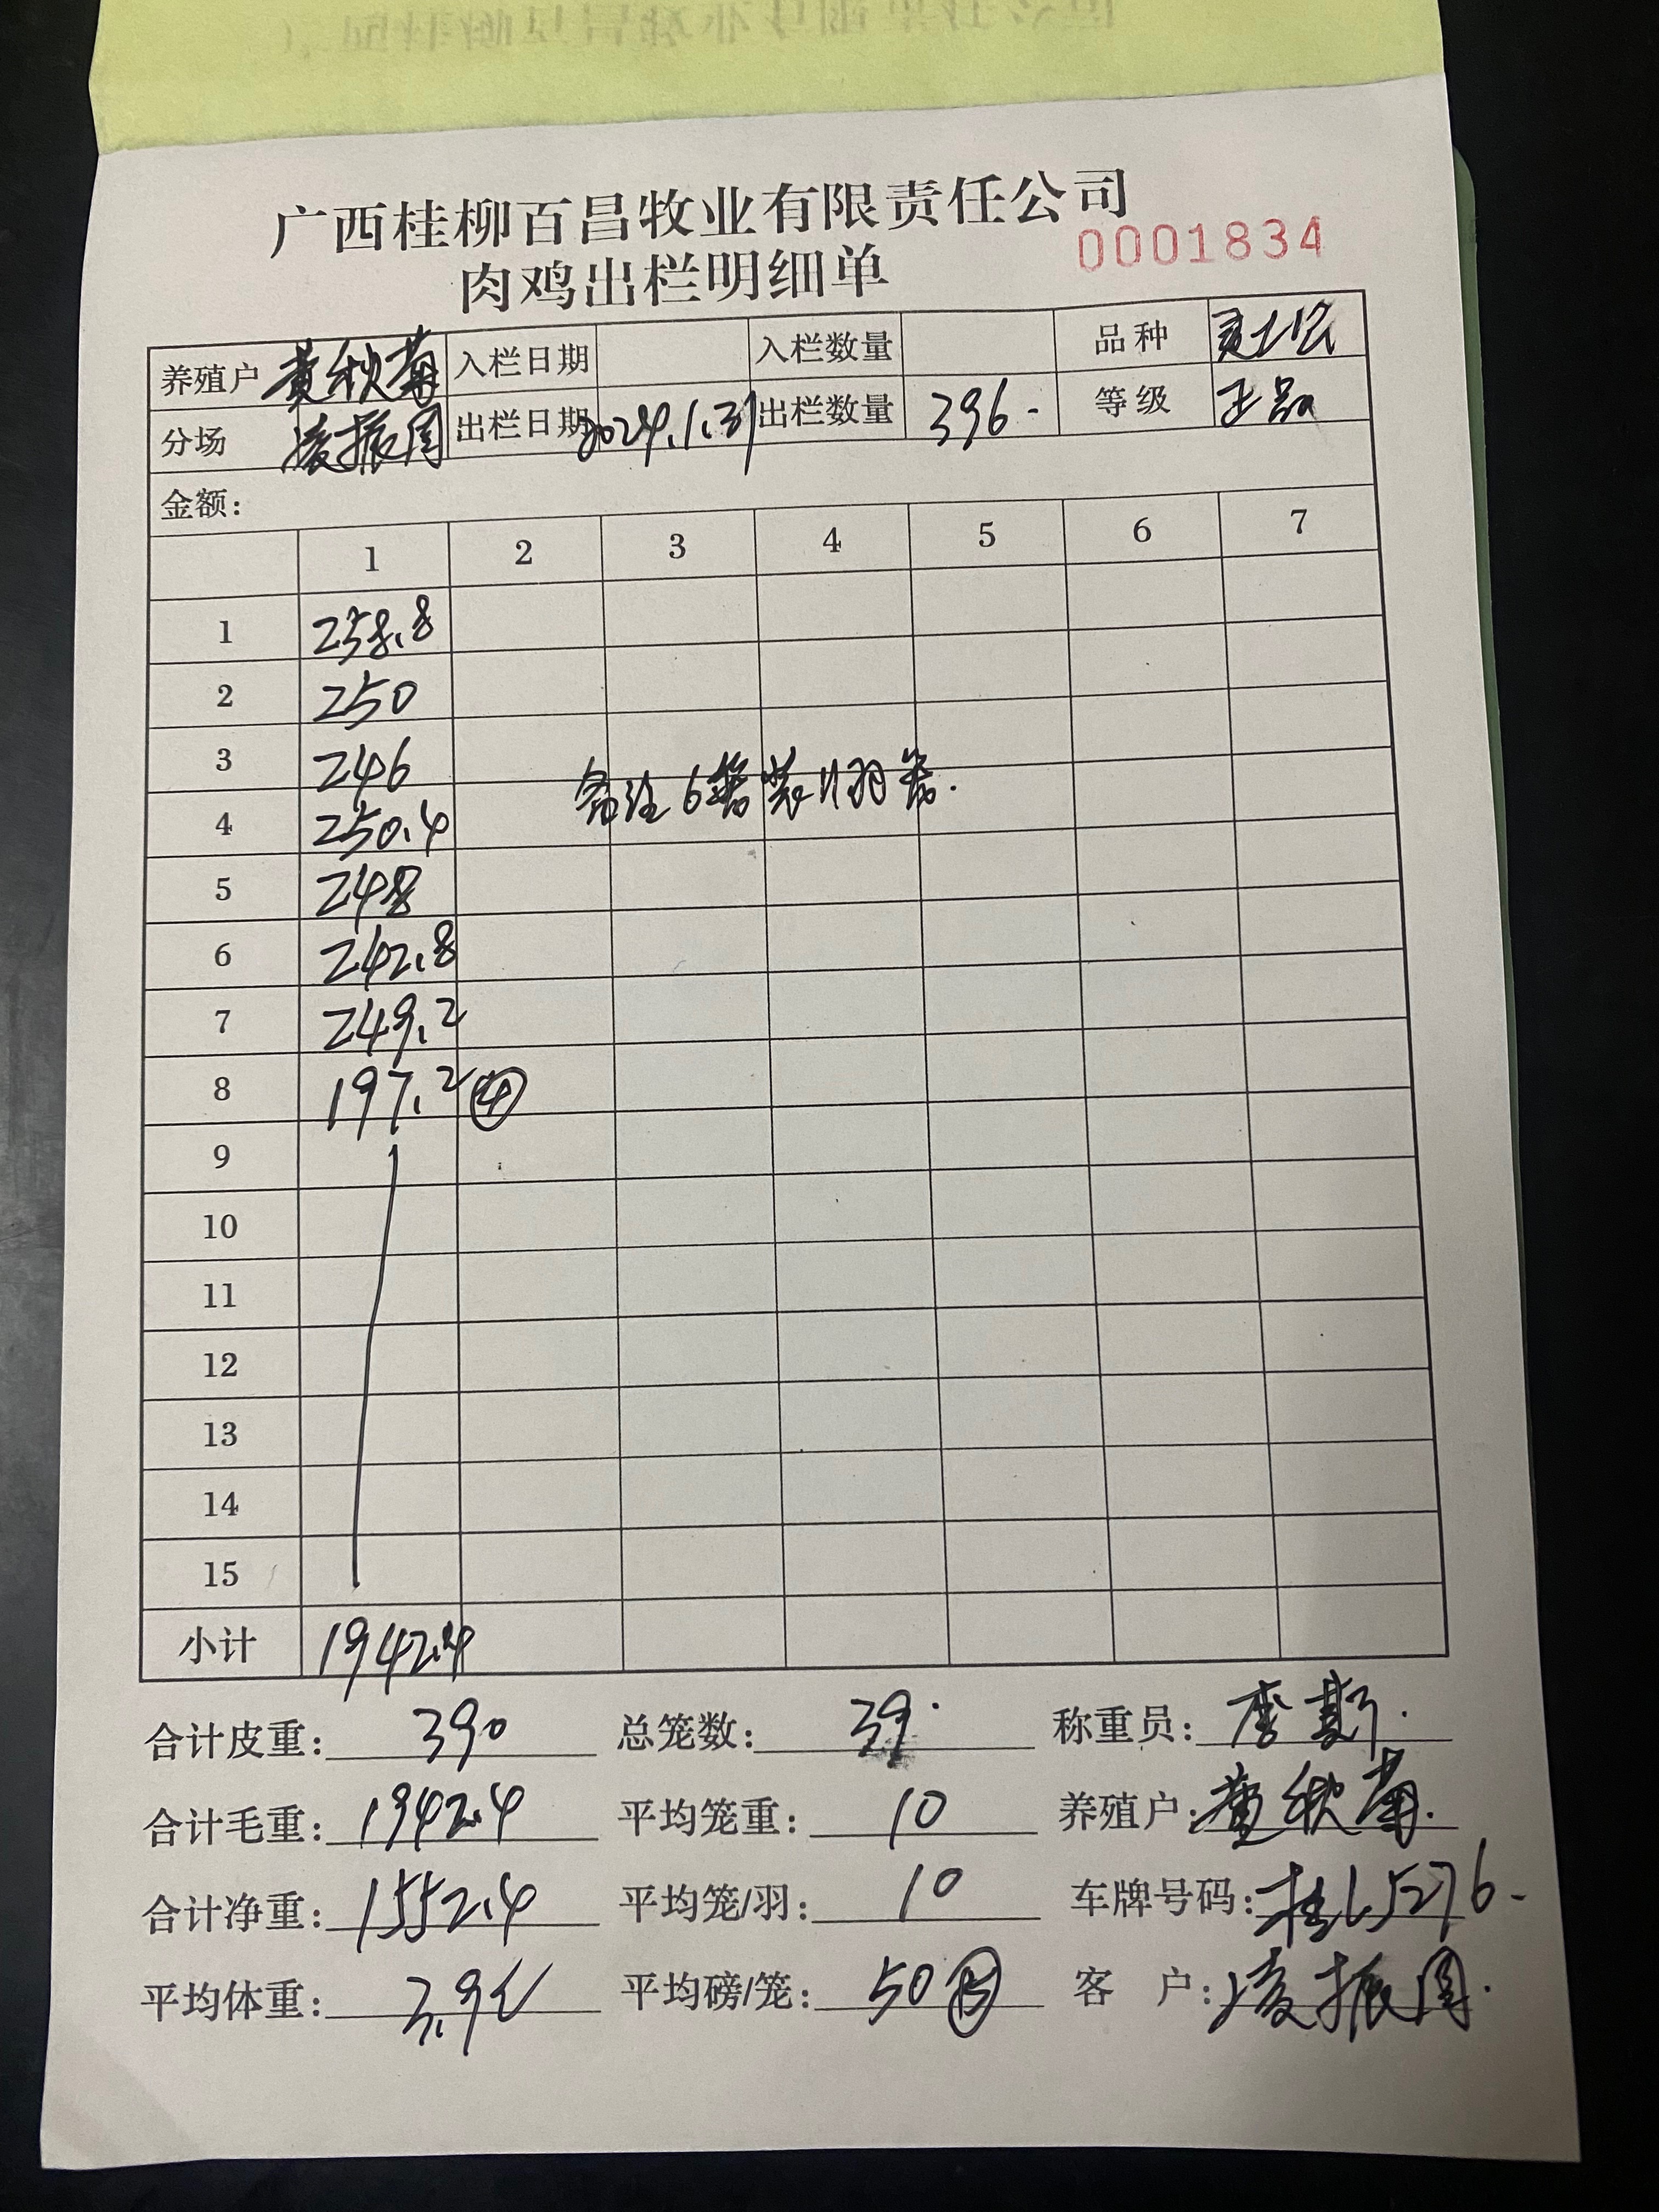 广西桂柳百昌牧业有限责任公司
0001834
肉鸡出栏明细单
养殖户 黄秋菊 入栏日期 入栏数量 品种
分场 凌振国 出栏日期 2024.1.31 出栏数量 396- 等级 正品
金额:
1 2 3 4 5 6 7
1 258.8
2 250
3 246
备注6 装11羽
4 250.4
5 248
6 242.8
7 249.2
8 197.2 ④
9
10
11
12
13
14
15
小计 1942.4
合计皮重: 390 总笼数: 39. 称重员: 李斯.
合计毛重: 1942.4 平均笼重: 10 养殖户: 黄秋菊.
合计净重: 1552.4 平均笼/羽: 10 车牌号码: 桂L5276-
平均体重: 3.9 平均磅/笼: 50 客 户: 凌振国.